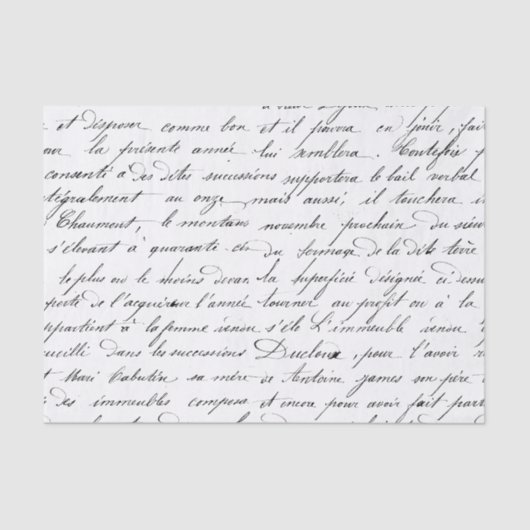 et disposer comme bon et il pourra en jouir, fai
la présente année lui semblera. Toutefois
consenti à des dites sucussions supportera le bail verbal
tégralement au onze mais aussi, il touchera
Chaumont, le montans novembre prochain du sieur
s'élevant à quarante du fermage de la dite terre
le plus ou le moins devan la superficie désignée ci dessu
porte de l'acquéreur l'année tourner au profit ou à la
ppartient à la femme vendu s'éle L'immeuble vendu
ueilli dans les successions Ducloux, pour l'avoir
Mari Cabutin sa mère de Antoine James son père
des immeubles compose et encore pour avoir fait part